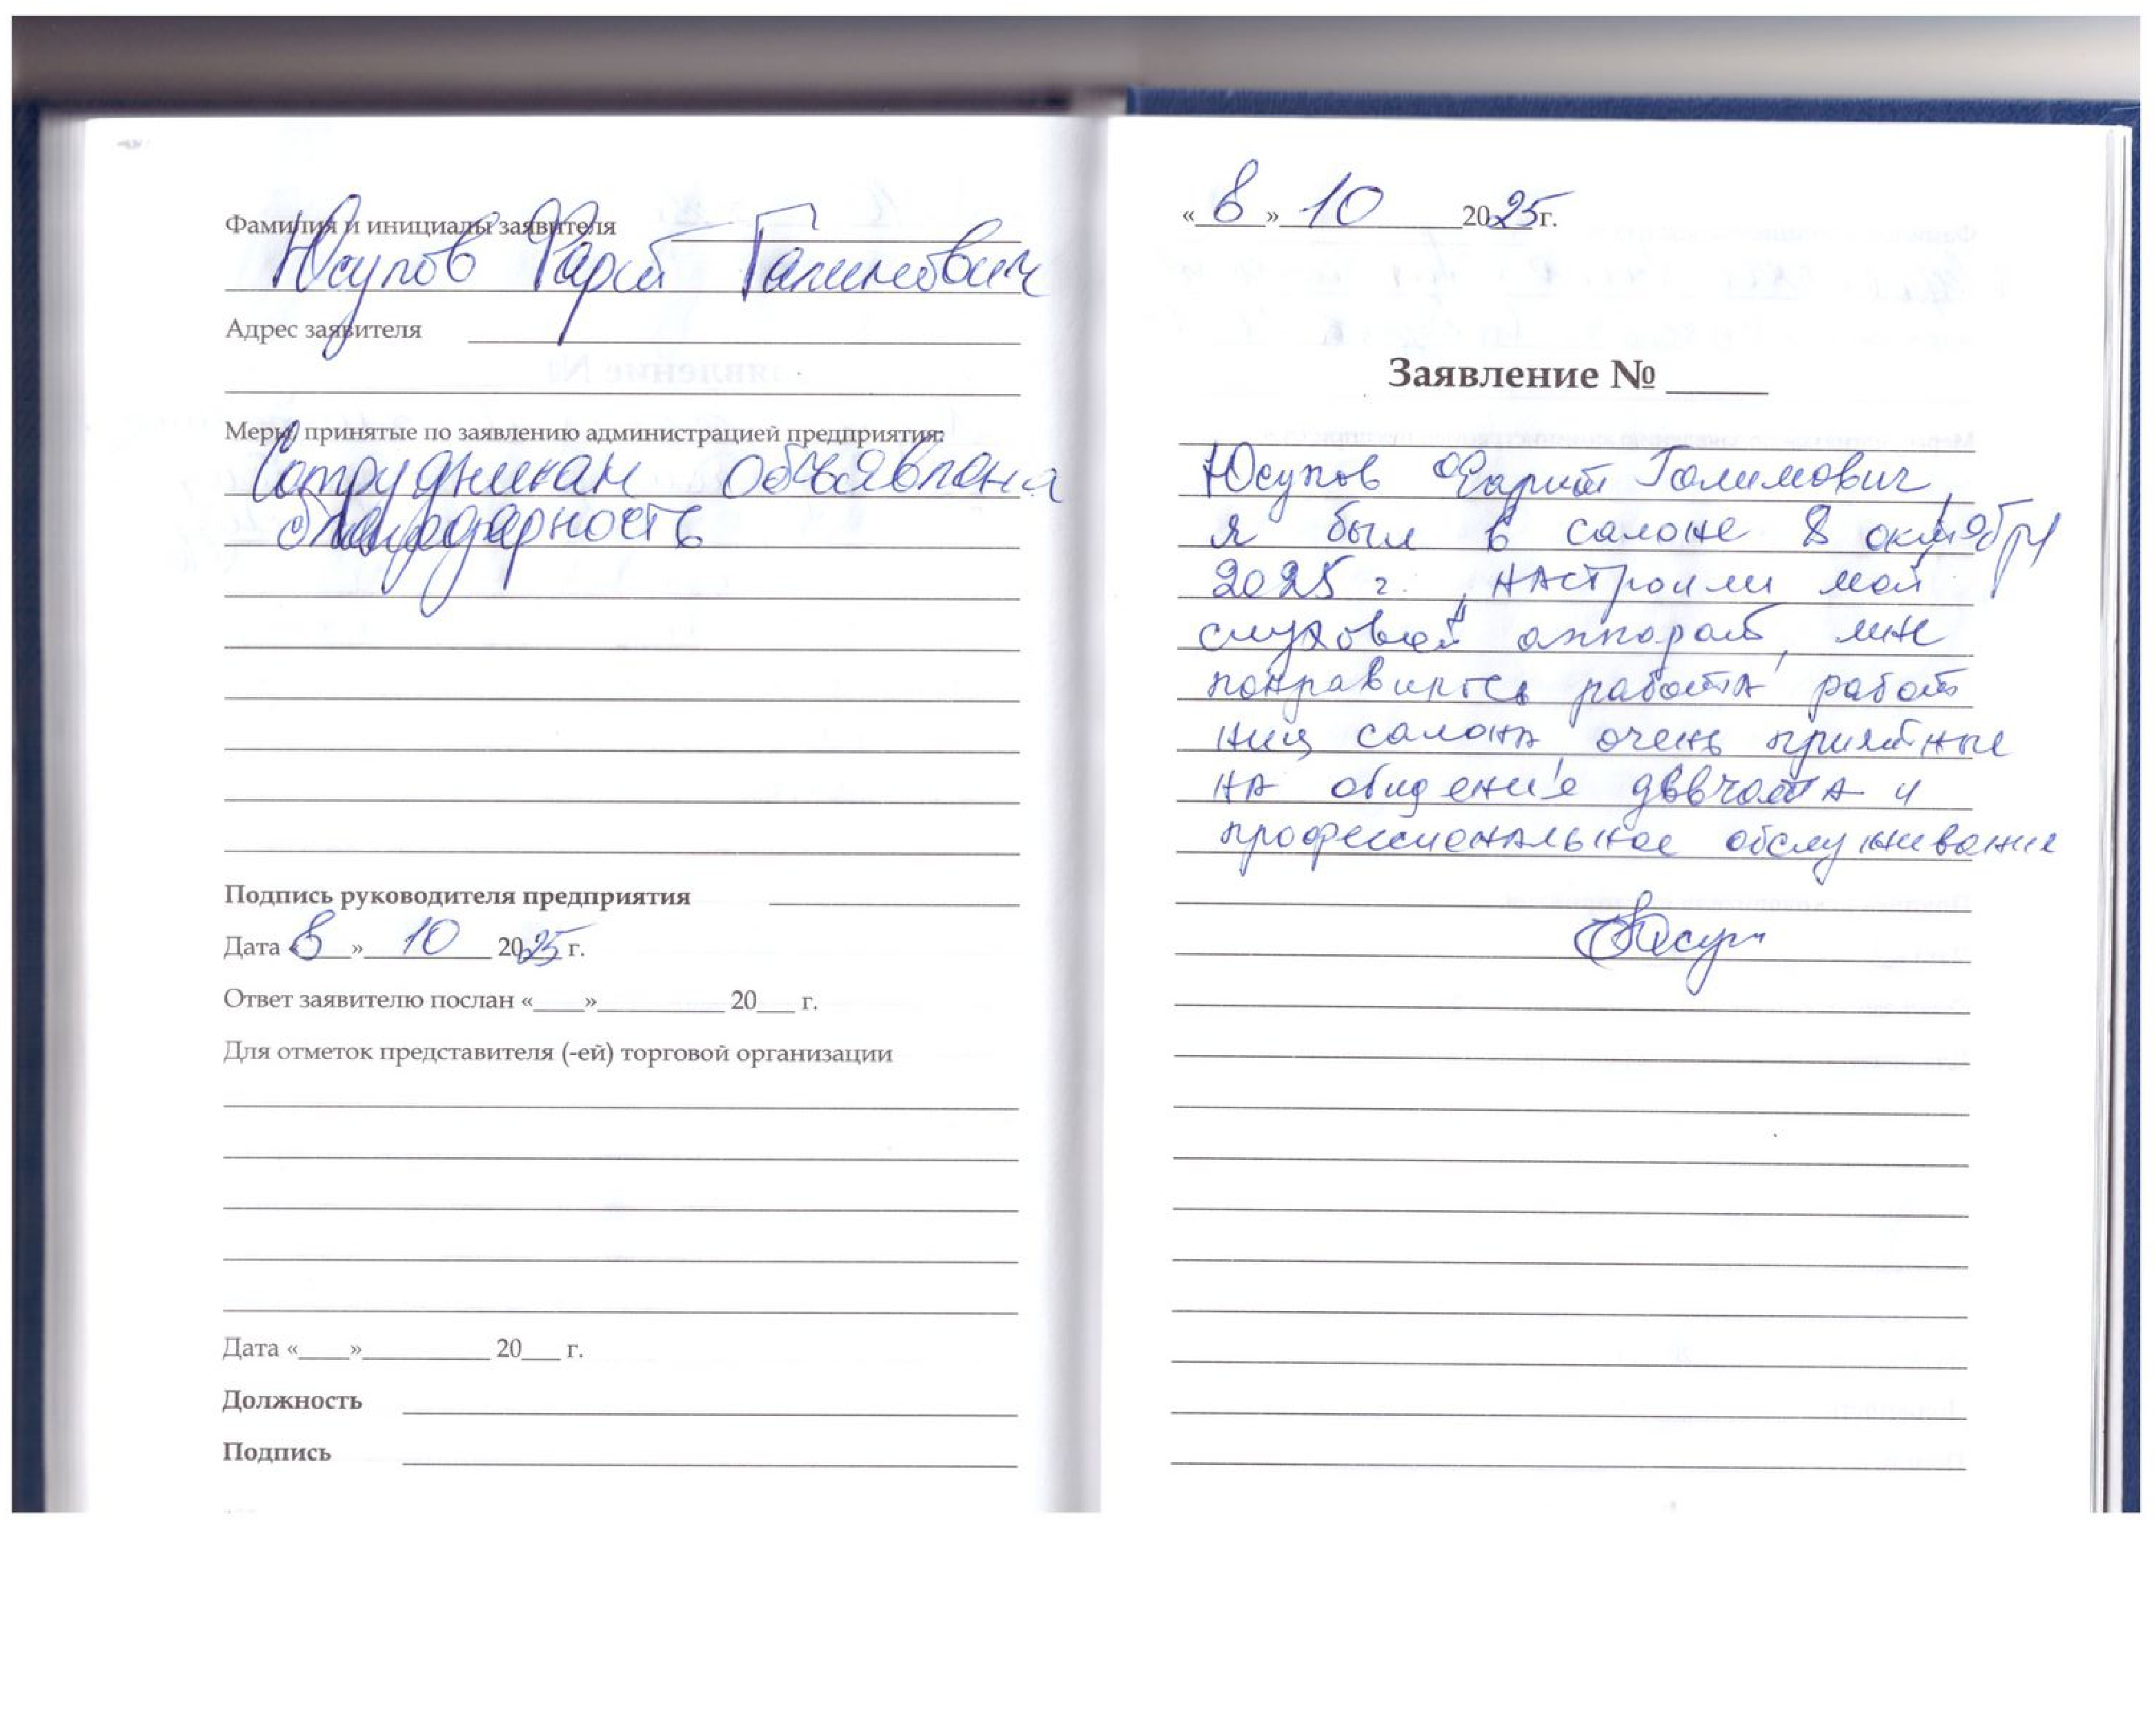 Фамилия и инициалы заявителя
Юсупов Фарит Галимович
Адрес заявителя
Меры, принятые по заявлению администрацией предприятия:
Сотрудникам объявлена
благодарность
Подпись руководителя предприятия
Дата «8» 10 2025 г.
Ответ заявителю послан «____»__________ 20___ г.
Для отметок представителя (-ей) торговой организации
Дата «____»__________ 20___ г.
Должность
Подпись
«8» 10 2025г.
Заявление № _____
Юсупов Фарит Галимович,
я был в салоне 8 октября
2025 г. , настроили мой
слуховой аппарат, мне
понравилась работа работ
ниц салона, очень приятные
на общение девчата и
профессиональное обслуживание